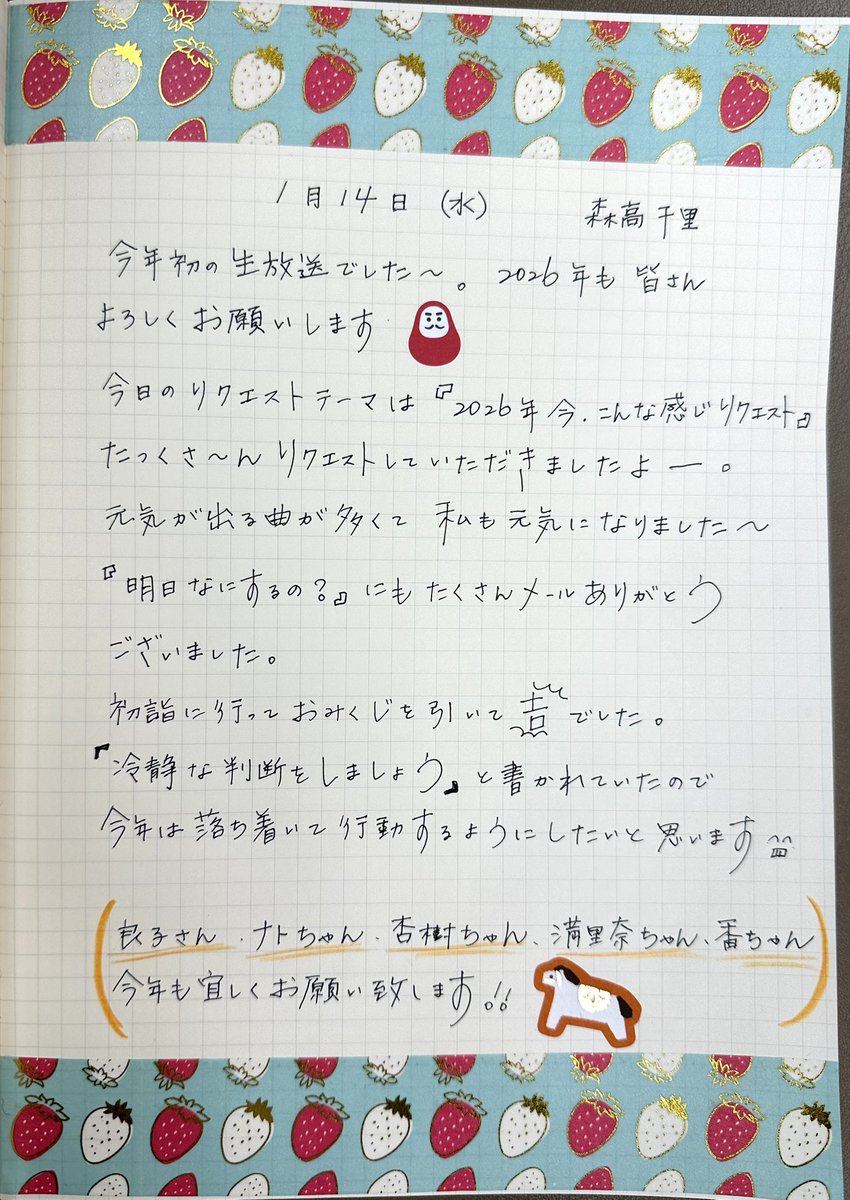 1月14日(水) 森高千里
今年初の生放送でした〜。2026年も皆さん
よろしくお願いします
今日のリクエストテーマは『2026年今、こんな感じリクエスト』
たっくさ〜んリクエストしていただきましたよー。
元気が出る曲が多くて私も元気になりました〜
『明日なにするの?』にもたくさんメールありがとう
ございました。
初詣に行っておみくじを引いて吉でした。
『冷静な判断をしましょう』と書かれていたので
今年は落ち着いて行動するようにしたいと思います
(良子さん、ナトちゃん、杏樹ちゃん、満里奈ちゃん、番ちゃん
今年も宜しくお願い致します!!)